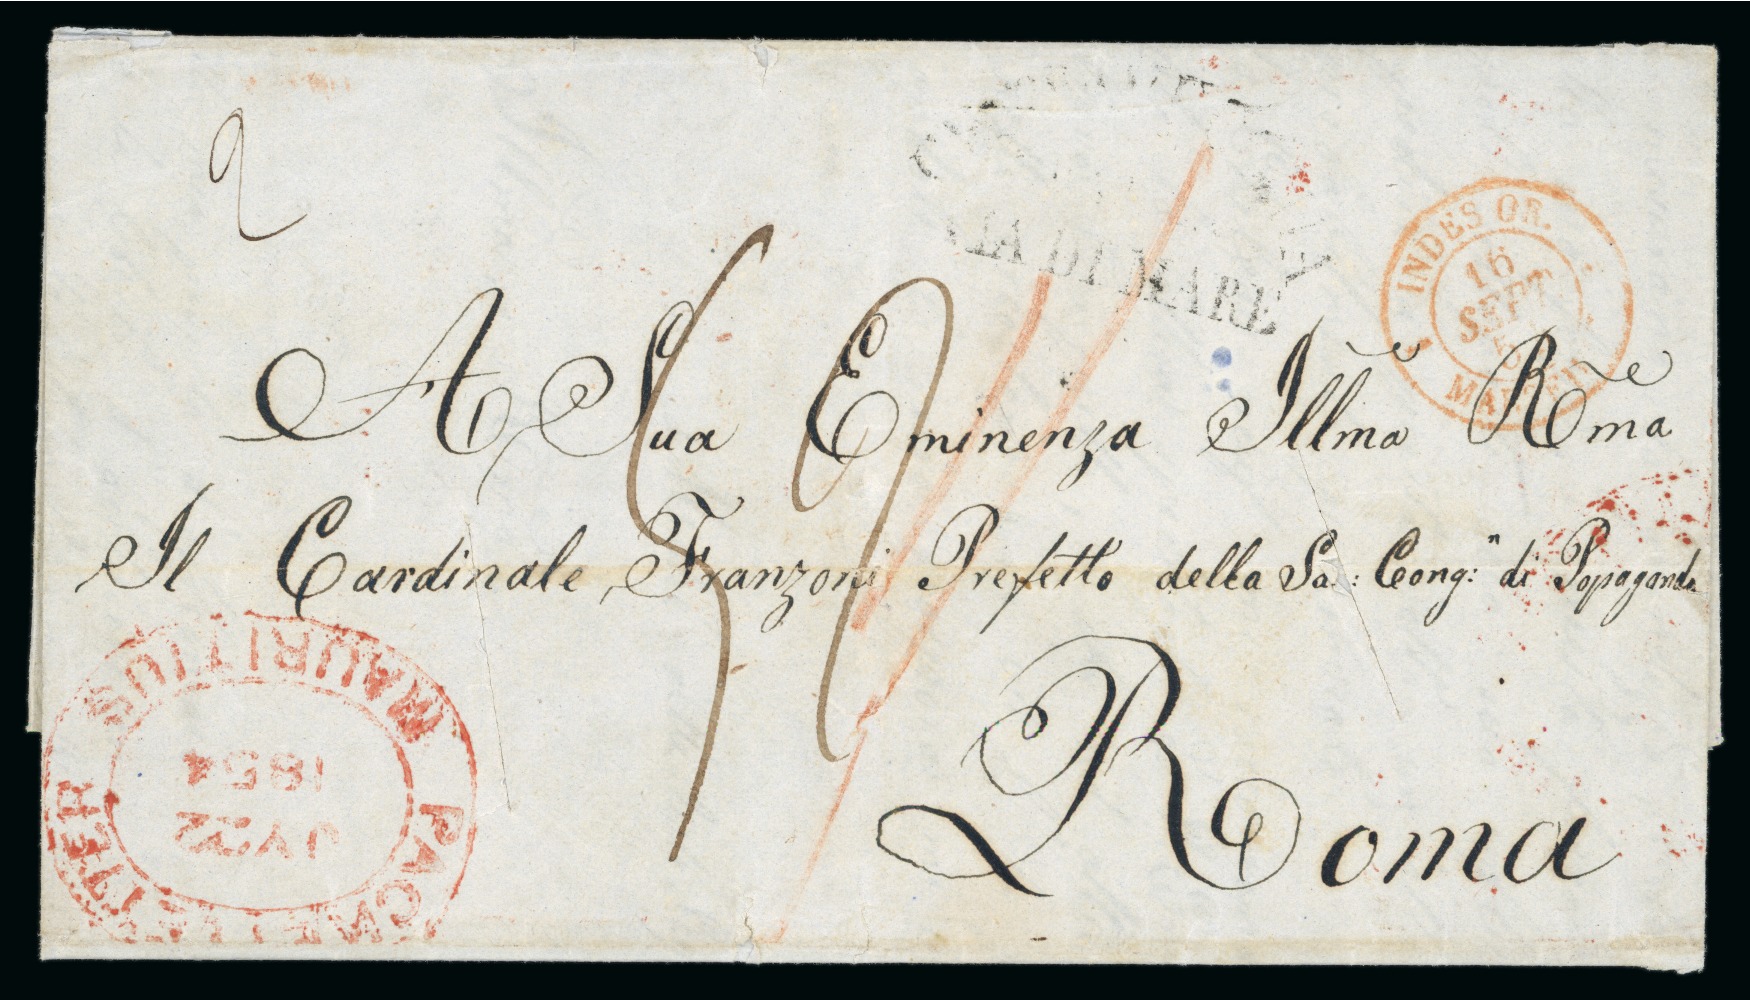 2
VIA DI MARE
INDES OR.
16
SEPT.
A Sua Eminenza Illma Rma
Il Cardinale Franzoni Prefetto della Sa: Cong:n di Popaganda
Roma
MAURITIUS
PACKET LETTER
JY 22
1854